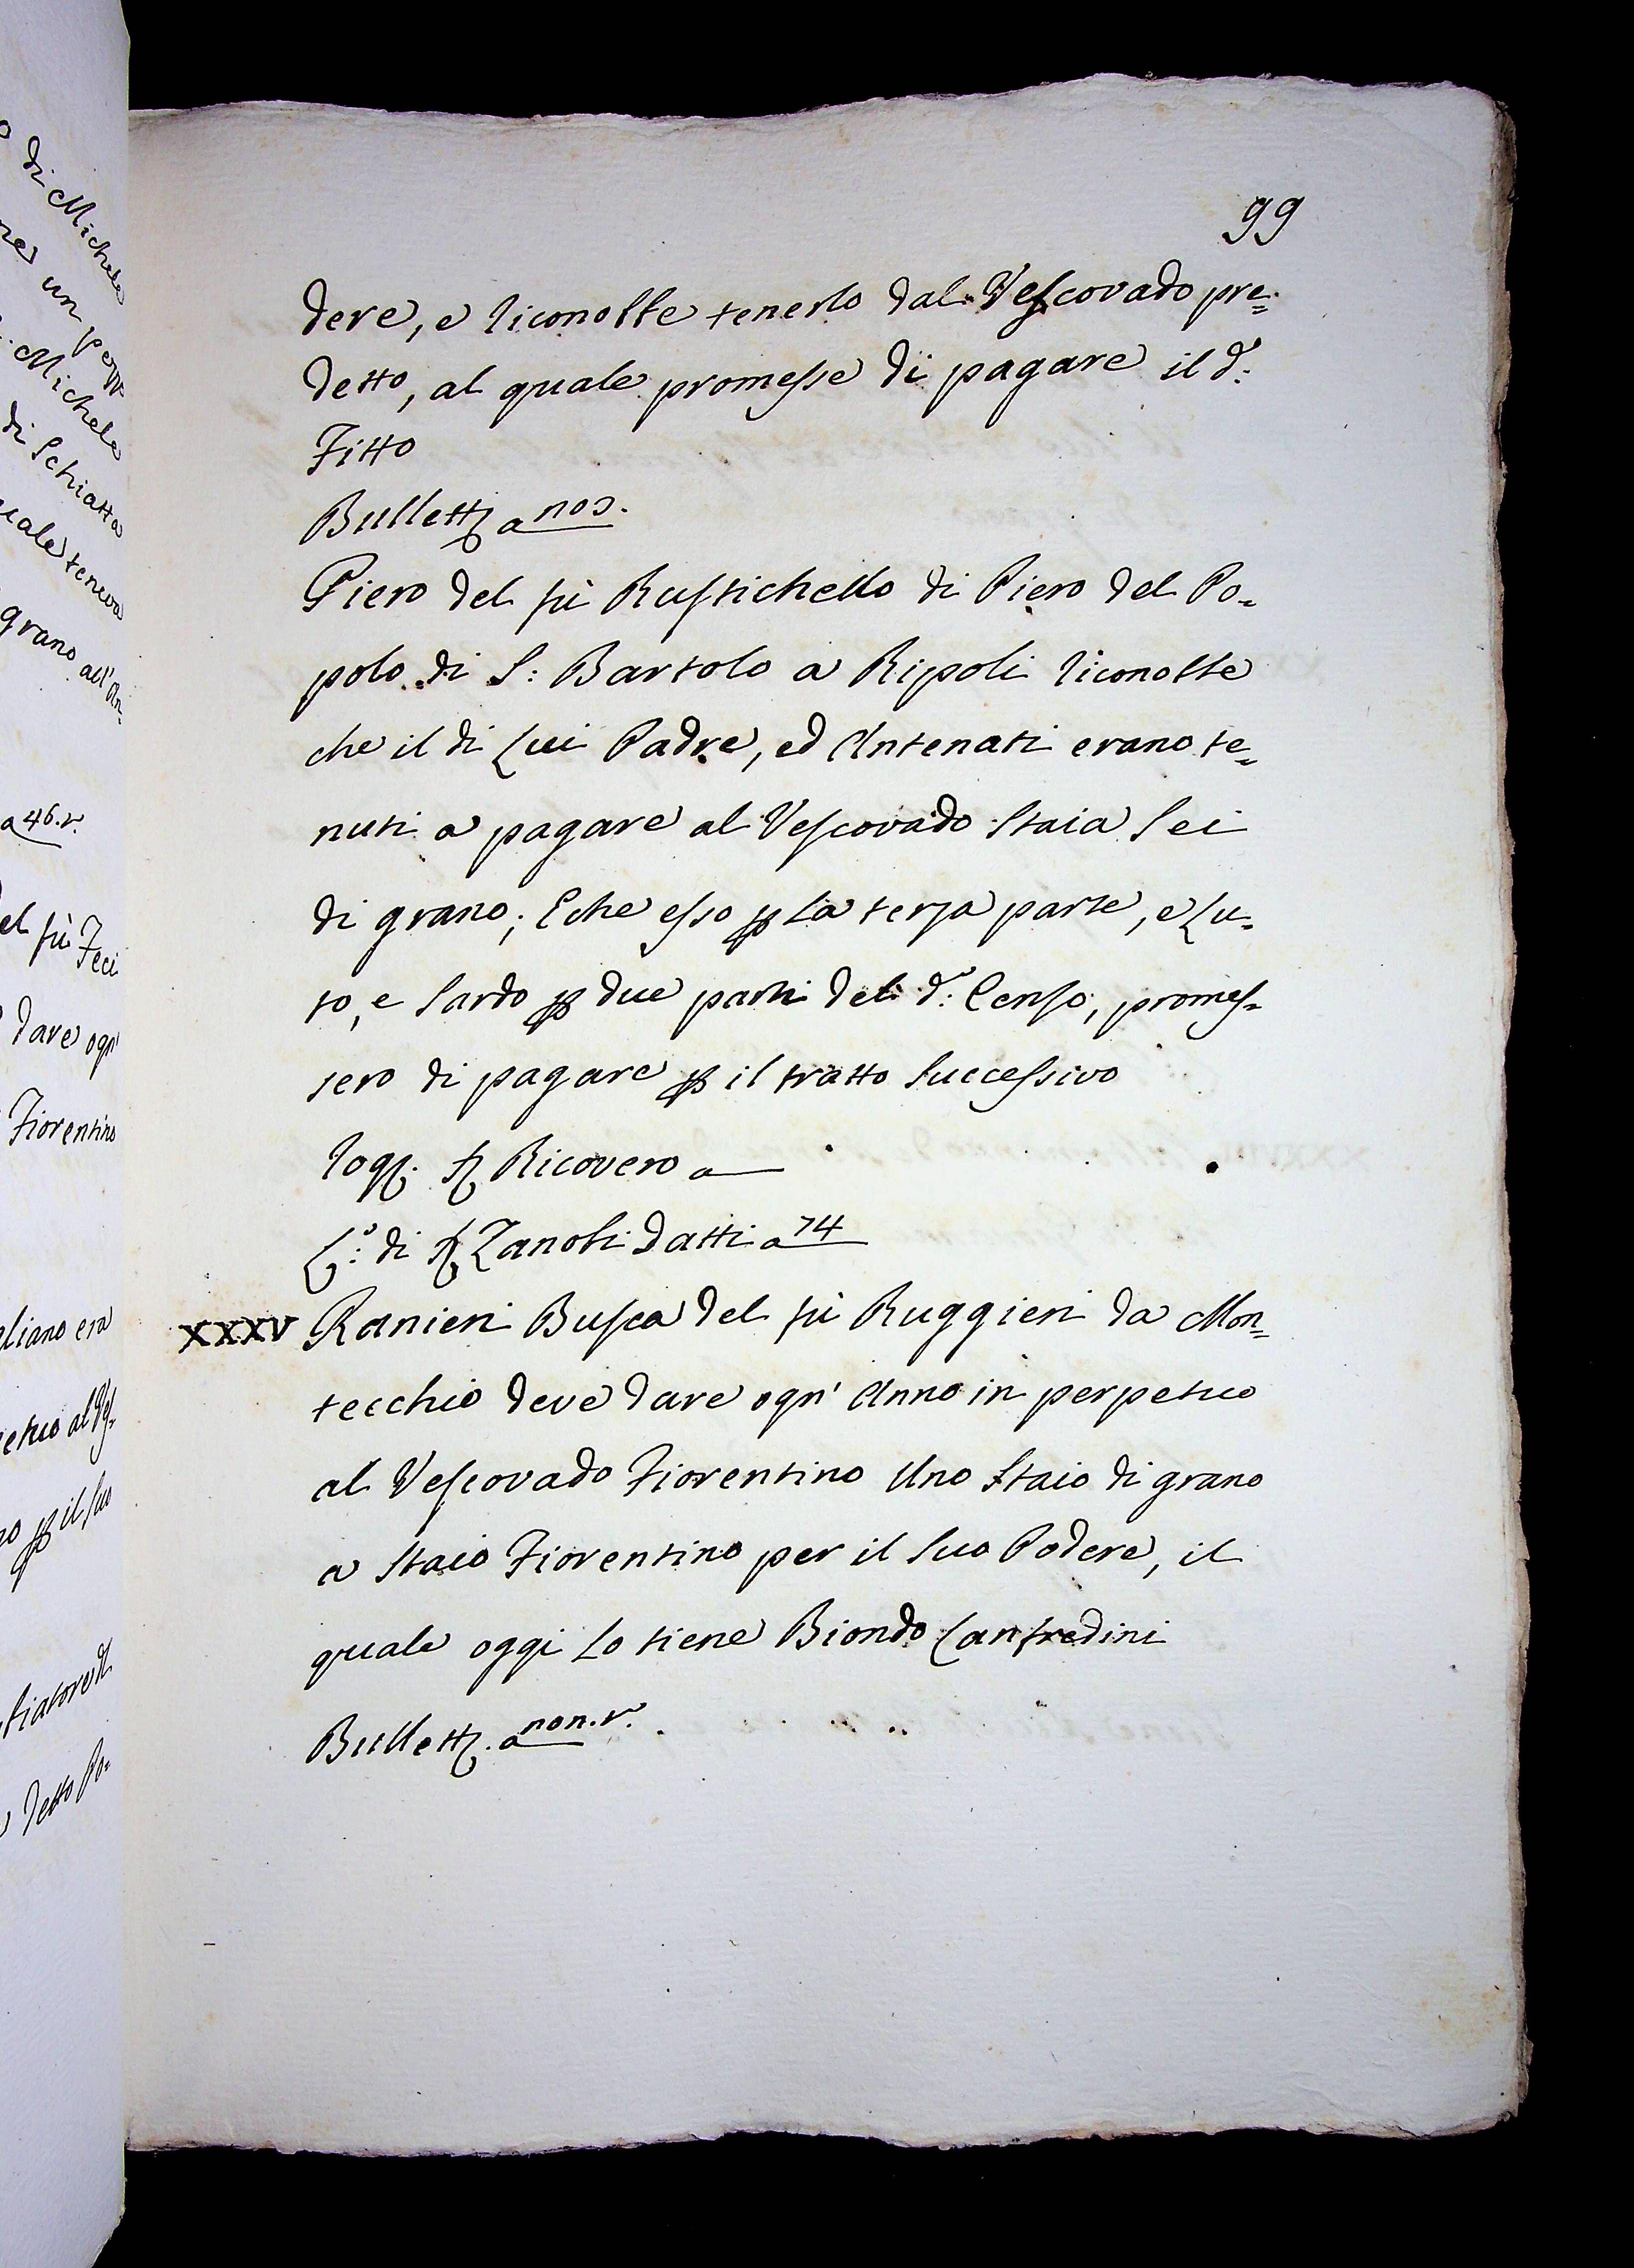 99
dere, e riconobbe tenerlo dal Vescovado pre=
detto, al quale promesse di pagare il d.°
Fitto
Bullett. a nos.
Piero del fù Rustichello di Piero del Po-
polo di S: Bartolo a Ripoli riconobbe
che il di Lui Padre, ed Antenati erano te=
nuti a pagare al Vescovado Staia Sei
di grano; E che esso p la terza parte, e Lu-
to, e Sardo p due parti del d.° Censo, promes-
sero di pagare p il tratto Successivo
Rog. S. Ricovero a
L.° di S. Zanobi Datti a 74
XXXV Ranieri Busca del fù Ruggieri da Mon=
tecchio deve dare ogn' Anno in perpetuo
al Vescovado Fiorentino Uno Staio di grano
a Staio Fiorentino per il Suo Podere, il
quale oggi Lo tiene Biondo Lanfredini
Bullett. a non. v.
di Michele
un pezz
Michele
di Schiatta
teneva
grano all' An-
a 46. v.
fù Feci
dare ogn'
Fiorentino
era
al Ves-
p il suo
detto Po-